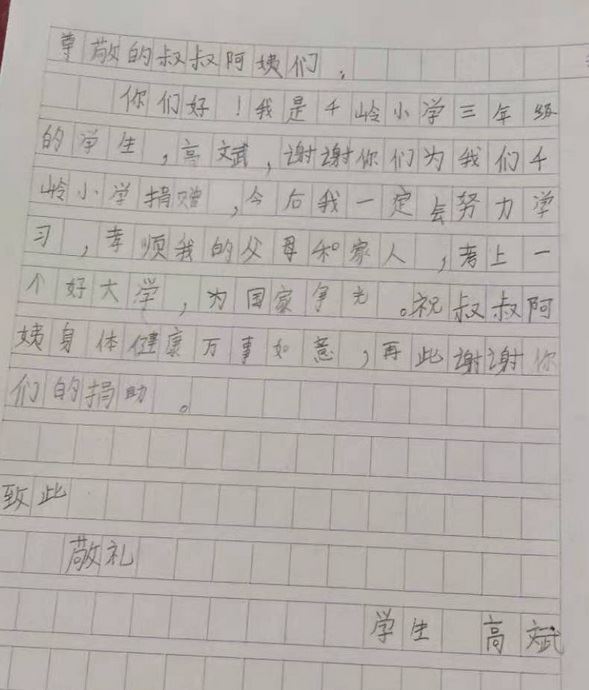 尊敬的叔叔阿姨们，
你们好！我是千岭小学三年级
的学生，高文斌，谢谢你们为我们千
岭小学捐赠，今后我一定会努力学
习，孝顺我的父母和家人，考上一
个好大学，为国家争光。祝叔叔阿
姨身体健康万事如意，再此谢谢你
们的捐助。
致此
敬礼
学生 高文斌